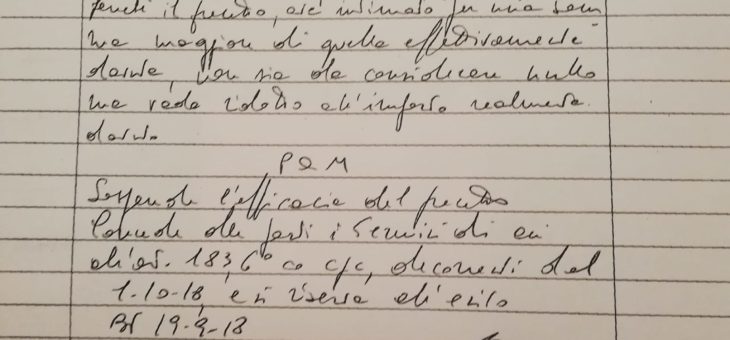 benché il precetto, ove intimato per una som
ma maggiore di quella effettivamente
dovuta, non sia da considerare nullo
ma vada ridotto all'importo realmente
dovuto
PQM
Sospende l'efficacia del precetto
Concede alle parti i termini di cui
all'art. 183, 6° co cpc, decorrenti dal
1-10-18, e si riserva all'esito
BS 19-9-18